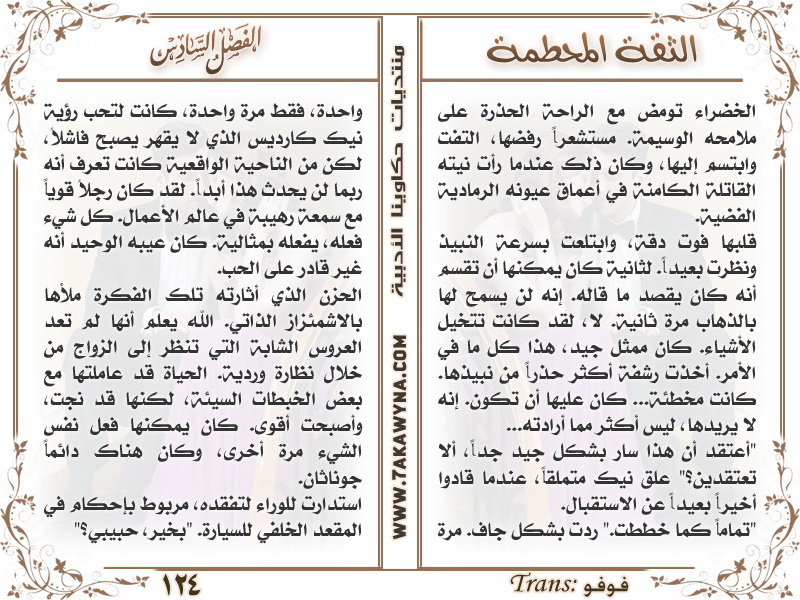 الثقة المحطمة
الخضراء تومض مع الراحة الحذرة على
ملامحه الوسيمة. مستشعراً رفضها، التفت
وابتسم إليها، وكان ذلك عندما رأت نيته
القاتلة الكامنة في أعماق عيونه الرمادية
الفضية.
قلبها فوت دقة، وابتلعت بسرعة النبيذ
ونظرت بعيداً. لثانية كان يمكنها أن تقسم
أنه كان يقصد ما قاله. إنه لن يسمح لها
بالذهاب مرة ثانية. لا، لقد كانت تتخيل
الأشياء. كان ممثل جيد، هذا كل ما في
الأمر. أخذت رشفة أكثر حذراً من نبيذها.
كانت مخطئة... كان عليها أن تكون. إنه
لا يريدها، ليس أكثر مما أرادته...
"أعتقد أن هذا سار بشكل جيد جداً، ألا
تعتقدين؟" علق نيك متملقاً، عندما قادوا
أخيراً بعيداً عن الاستقبال.
"تماماً كما خططت." ردت بشكل جاف. مرة
Trans: فوفو
منتديات حكاوينا الأدبية
WWW.7AKAWYNA.COM
الفصل السادس
واحدة، فقط مرة واحدة، كانت لتحب رؤية
نيك كارديس الذي لا يقهر يصبح فاشلاً،
لكن من الناحية الواقعية كانت تعرف أنه
ربما لن يحدث هذا أبداً. لقد كان رجلاً قوياً
مع سمعة رهيبة في عالم الأعمال. كل شيء
فعله، يفعله بمثالية. كان عيبه الوحيد أنه
غير قادر على الحب.
الحزن الذي أثارته تلك الفكرة ملأها
بالاشمئزاز الذاتي. الله يعلم أنها لم تعد
العروس الشابة التي تنظر إلى الزواج من
خلال نظارة وردية. الحياة قد عاملتها مع
بعض الخبطات السيئة، لكنها قد نجت،
وأصبحت أقوى. كان يمكنها فعل نفس
الشيء مرة أخرى، وكان هناك دائماً
جوناثان.
استدارت للوراء لتفقده، مربوط بإحكام في
المقعد الخلفي للسيارة. "بخير، حبيبي؟"
١٢٤